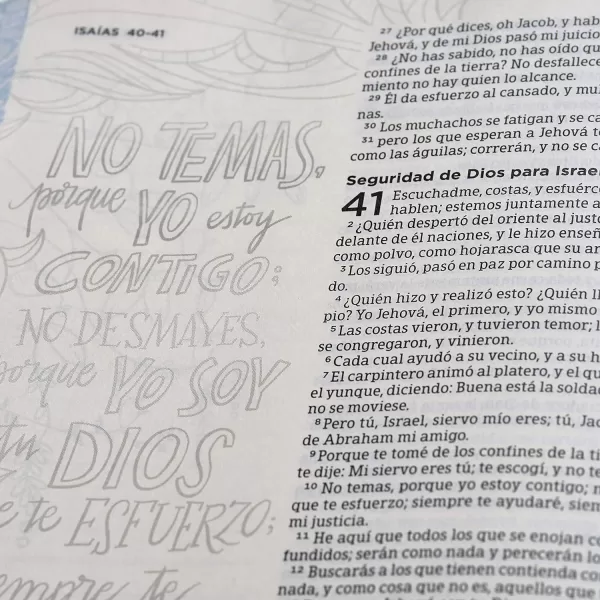 ISAÍAS 40-41
NO TEMAS,
porque YO estoy
CONTIGO;
NO DESMAYES,
porque YO SOY
tu DIOS
te ESFUERZO;
siempre te
27 ¿Por qué dices, oh Jacob, y hab
Jehová, y de mi Dios pasó mi juicio
28 ¿No has sabido, no has oído qu
confines de la tierra? No desfallece
miento no hay quien lo alcance.
29 Él da esfuerzo al cansado, y mul
nas.
30 Los muchachos se fatigan y se ca
31 pero los que esperan a Jehová t
como las águilas; correrán, y no se c
Seguridad de Dios para Israel
41 Escuchadme, costas, y esfuérc
hablen; estemos juntamente a
2 ¿Quién despertó del oriente al justo
delante de él naciones, y le hizo enseñ
como polvo, como hojarasca que su ar
3 Los siguió, pasó en paz por camino p
do.
4 ¿Quién hizo y realizó esto? ¿Quién ll
pio? Yo Jehová, el primero, y yo mismo
5 Las costas vieron, y tuvieron temor; l
se congregaron, y vinieron.
6 Cada cual ayudó a su vecino, y a su h
7 El carpintero animó al platero, y el qu
el yunque, diciendo: Buena está la soldad
no se moviese.
8 Pero tú, Israel, siervo mío eres; tú, Jac
de Abraham mi amigo.
9 Porque te tomé de los confines de la ti
te dije: Mi siervo eres tú; te escogí, y no te
10 No temas, porque yo estoy contigo; n
que te esfuerzo; siempre te ayudaré, siem
mi justicia.
11 He aquí que todos los que se enojan co
fundidos; serán como nada y perecerán lo
12 Buscarás a los que tienen contienda co
nada, y como cosa que no es, aquellos que